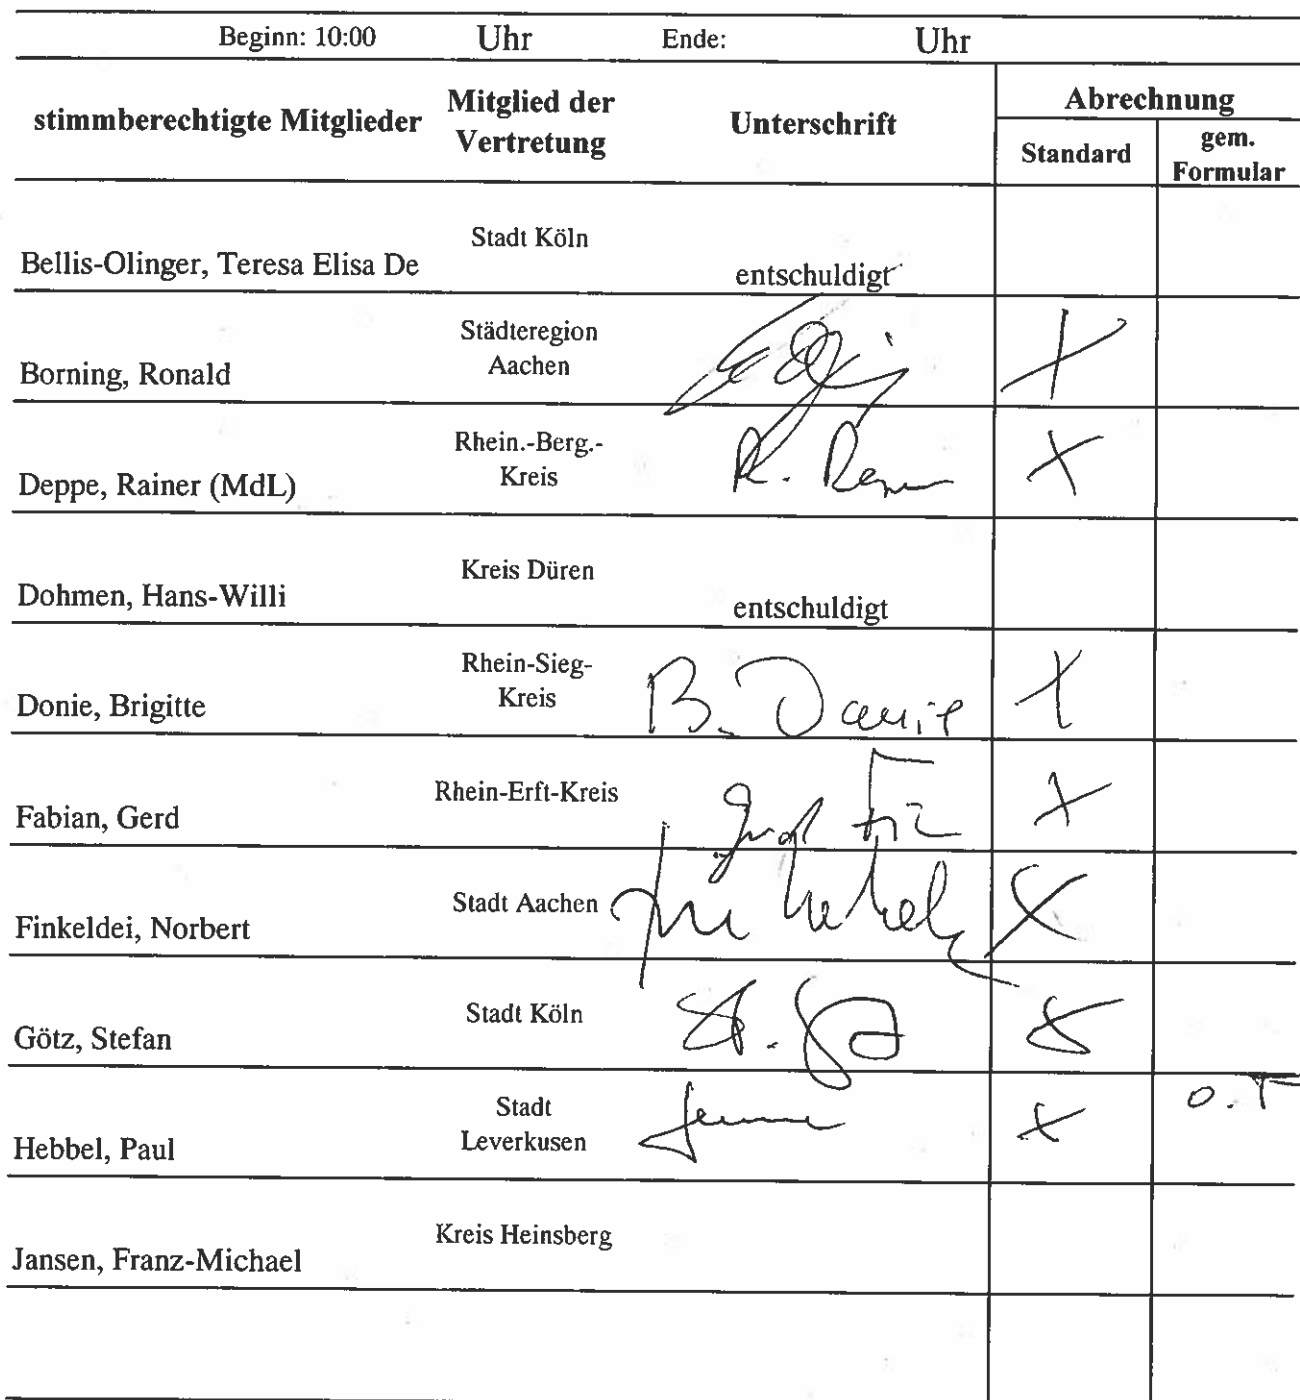 Beginn: 10:00 Uhr Ende: Uhr
stimmberechtigte Mitglieder Mitglied der Vertretung Unterschrift Abrechnung
Standard gem. Formular
Bellis-Olinger, Teresa Elisa De Stadt Köln entschuldigt
Borning, Ronald Städteregion Aachen X
Deppe, Rainer (MdL) Rhein.-Berg.-Kreis R. X
Dohmen, Hans-Willi Kreis Düren entschuldigt
Donie, Brigitte Rhein-Sieg-Kreis B. Donie X
Fabian, Gerd Rhein-Erft-Kreis X
Finkeldei, Norbert Stadt Aachen X
Götz, Stefan Stadt Köln St. X
Hebbel, Paul Stadt Leverkusen X
Jansen, Franz-Michael Kreis Heinsberg